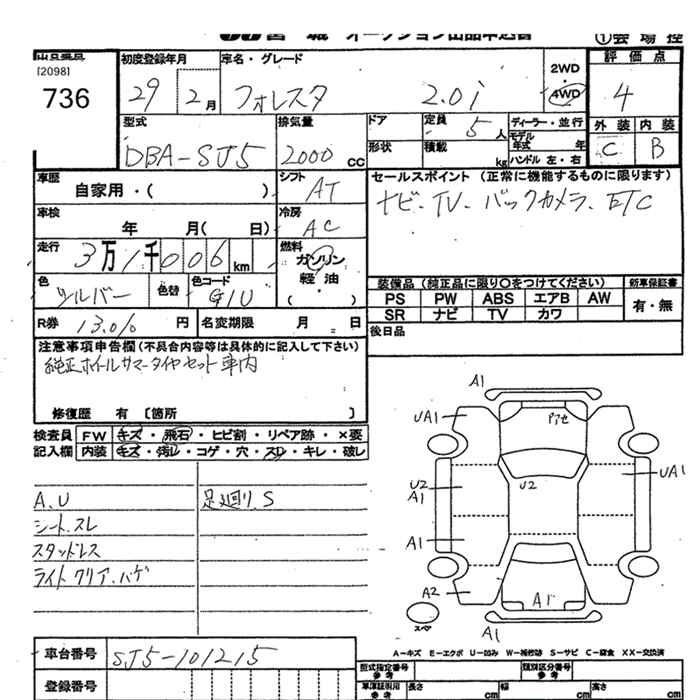 宮城 オークション出品申込書
①会場控
出品番号 初度登録年月 車名・グレード 2WD 評価点
[2098]
736 29 2月 フォレスタ 2.0i 4WD 4
型式 排気量 ドア 定員 5人 ディーラー・並行 外装 内装
モデル年式 年
DBA-SJ5 2000cc 形状 積載 kg ハンドル 左・右 C B
車歴 シフト セールスポイント(正常に機能するものに限ります)
自家用・( ) AT ナビ-TV-バックカメラ-ETC
車検 冷房
年 月( 日) AC
走行 燃料
3万1千006km ガソリン
軽油
( ・ )
装備品(純正品に限り○をつけてください) 新車保証書
色 色替 色コード
シルバー G1U
PS PW ABS エアB AW 有・無
SR ナビ TV カワ
R券 13.0% 円 名変期限 月 日 後日品
注意事項申告欄(不具合内容等は具体的に記入して下さい)
純正ホイルサマータイヤセット車内
修復歴 有〔箇所 〕
検査員 FW キズ・飛石・ヒビ割・リペア跡・×要
記入欄 内装 キズ・汚レ・コゲ・穴・スレ・キレ・破レ
A.U 足廻りS
シート.スレ
スタッドレス
ライトクリア.ハゲ
A1
UA1
UA1
U2
U2
A1
A1
A2
A1
A1
スペア
A-キズ E-エクボ U-凹み W-補修跡 S-サビ C-腐食 XX-交換済
車台番号 SJ5-101215
型式指定番号 参考 類別区分番号 参考
登録番号
車庫証明用 参考 長さ cm 幅 cm 高さ cm